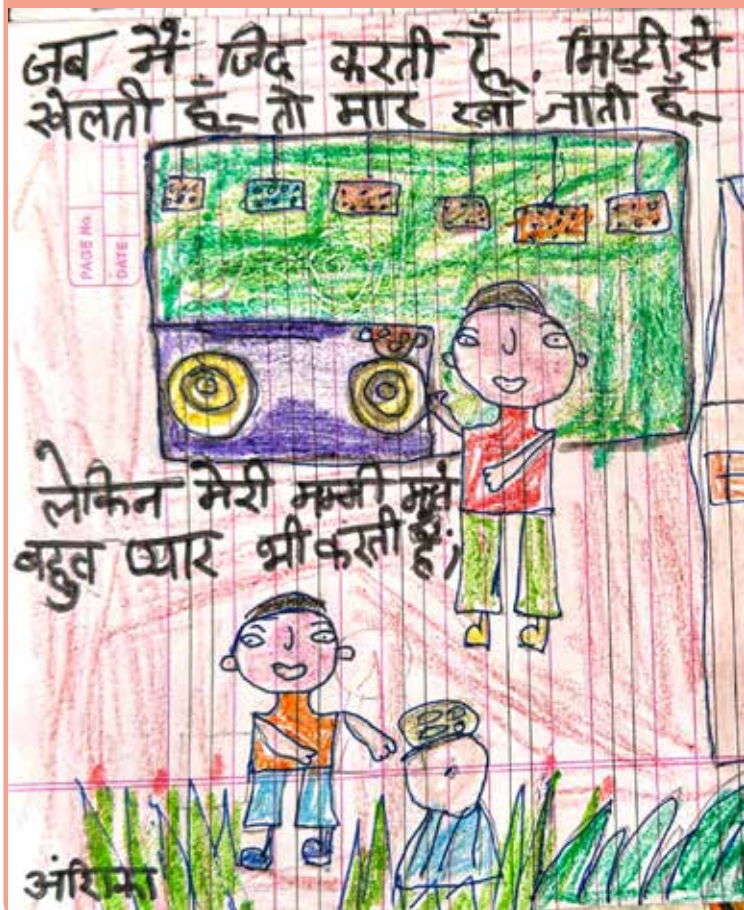 जब मैं जिद करती हूँ, मिट्टी से
खेलती हूँ- तो मार खा जाती हूँ-
PAGE No.
DATE
लेकिन मेरी मम्मी मुझे
बहुत प्यार भी करती हैं,
अंशिका